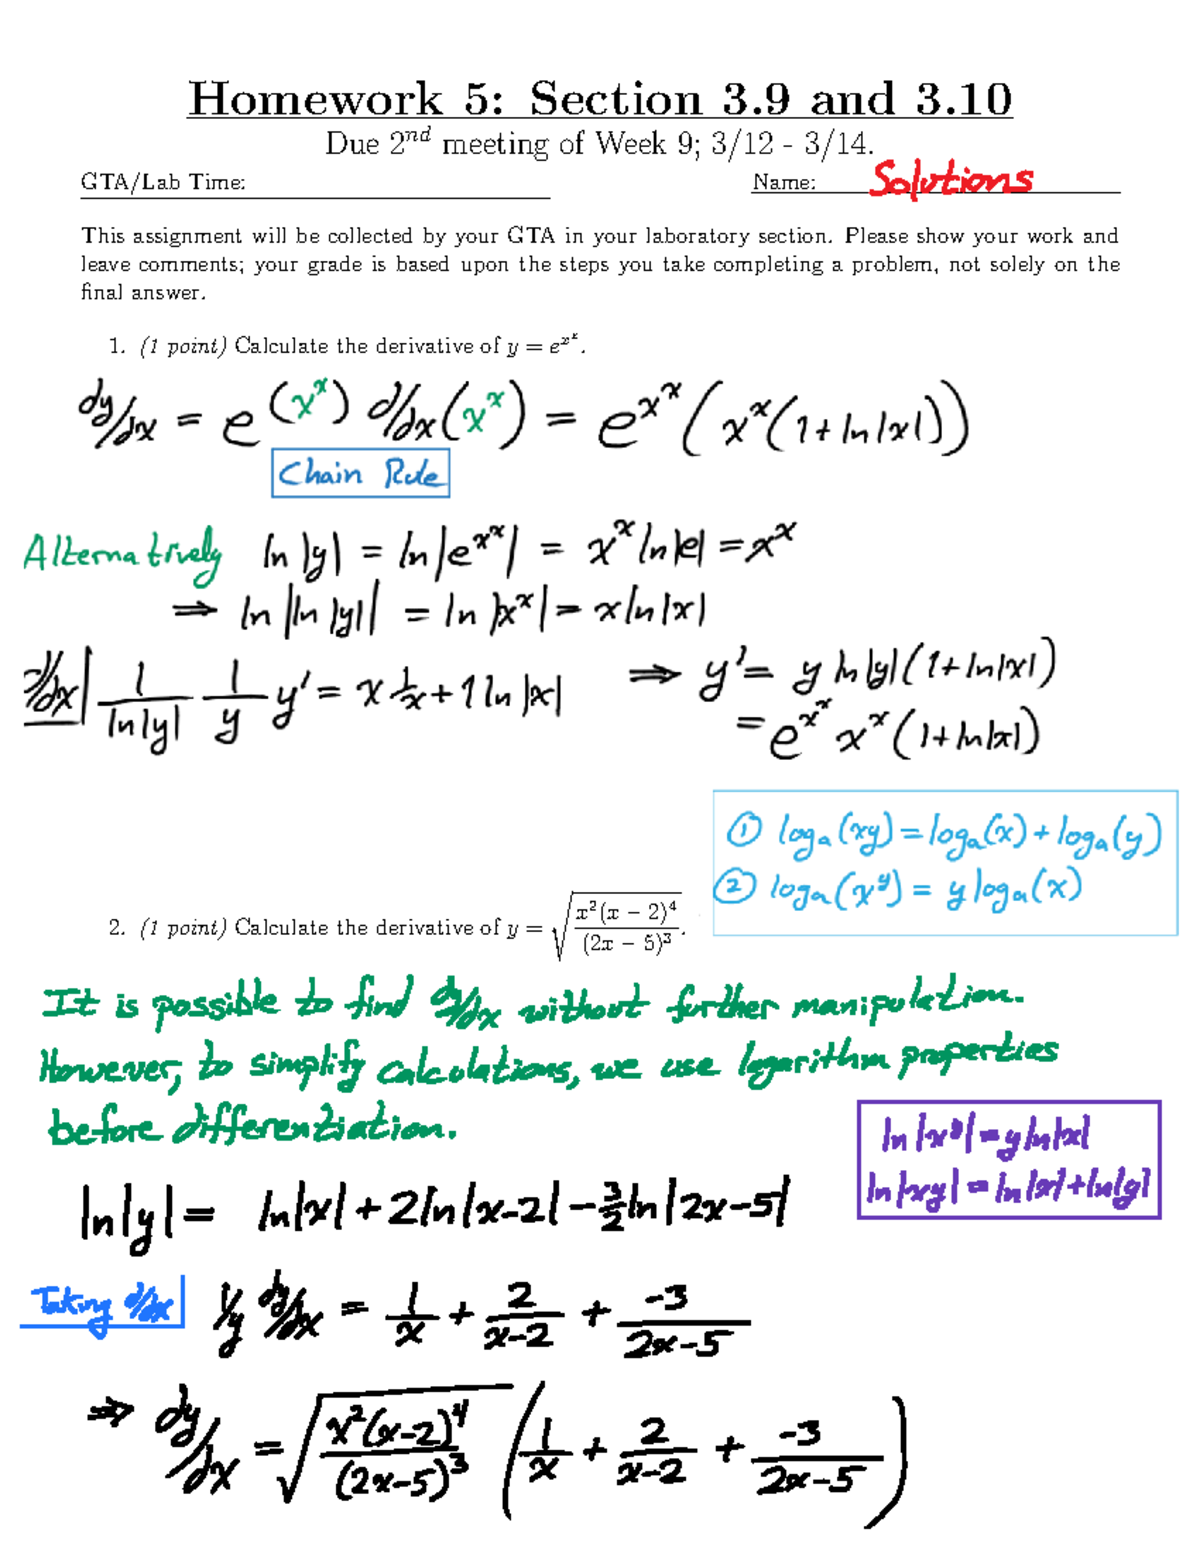 Homework 5: Section 3.9 and 3.10
Due 2^{nd} meeting of Week 9; 3/12 - 3/14.
GTA/Lab Time: Name: Solutions
This assignment will be collected by your GTA in your laboratory section. Please show your work and
leave comments; your grade is based upon the steps you take completing a problem, not solely on the
final answer.
1. (1 point) Calculate the derivative of y = e^{x^x}.
dy/dx = e^{(x^x)} d/dx(x^x) = e^{x^x}(x^x(1+ln|x|))
Chain Rule
Alternatively ln|y| = ln|e^{x^x}| = x^x ln|e| = x^x
⇒ ln|ln|y|| = ln|x^x| = x ln|x|
d/dx| \frac{1}{ln|y|} \frac{1}{y} y' = x \frac{1}{x} + 1 ln|x| ⇒ y' = y ln|y|(1+ln|x|)
= e^{x^x} x^x(1+ln|x|)
① log_a(xy) = log_a(x) + log_a(y)
② log_a(x^y) = y log_a(x)
2. (1 point) Calculate the derivative of y = \sqrt{\frac{x^2(x − 2)^4}{(2x − 5)^3}}.
It is possible to find dy/dx without further manipulation.
However, to simplify calculations, we use logarithm properties
before differentiation.
ln|x^y| = y ln|x|
ln|xy| = ln|x| + ln|y|
ln|y| = ln|x| + 2ln|x-2| - \frac{3}{2}ln|2x-5|
Taking d/dx 1/y dy/dx = \frac{1}{x} + \frac{2}{x-2} + \frac{-3}{2x-5}
⇒ dy/dx = \sqrt{\frac{x^2(x-2)^4}{(2x-5)^3}} (\frac{1}{x} + \frac{2}{x-2} + \frac{-3}{2x-5})